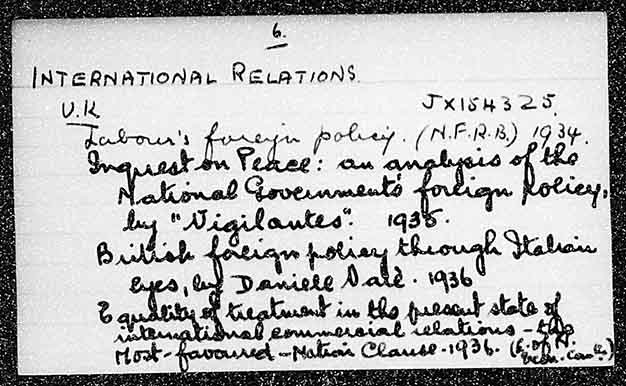 6.
INTERNATIONAL RELATIONS.
U.K JX154325.
Labour's foreign policy. (N.F.R.B.) 1934.
Inquest on Peace: an analysis of the
National Government's foreign policy,
by "Vigilantes". 1935.
British foreign policy through Italian
eyes, by Daniele Varè. 1936
Equality of treatment in the present state of
international commercial relations - the
Most-favoured-Nation Clause. 1936. (L. of N.
Econ. Com.)